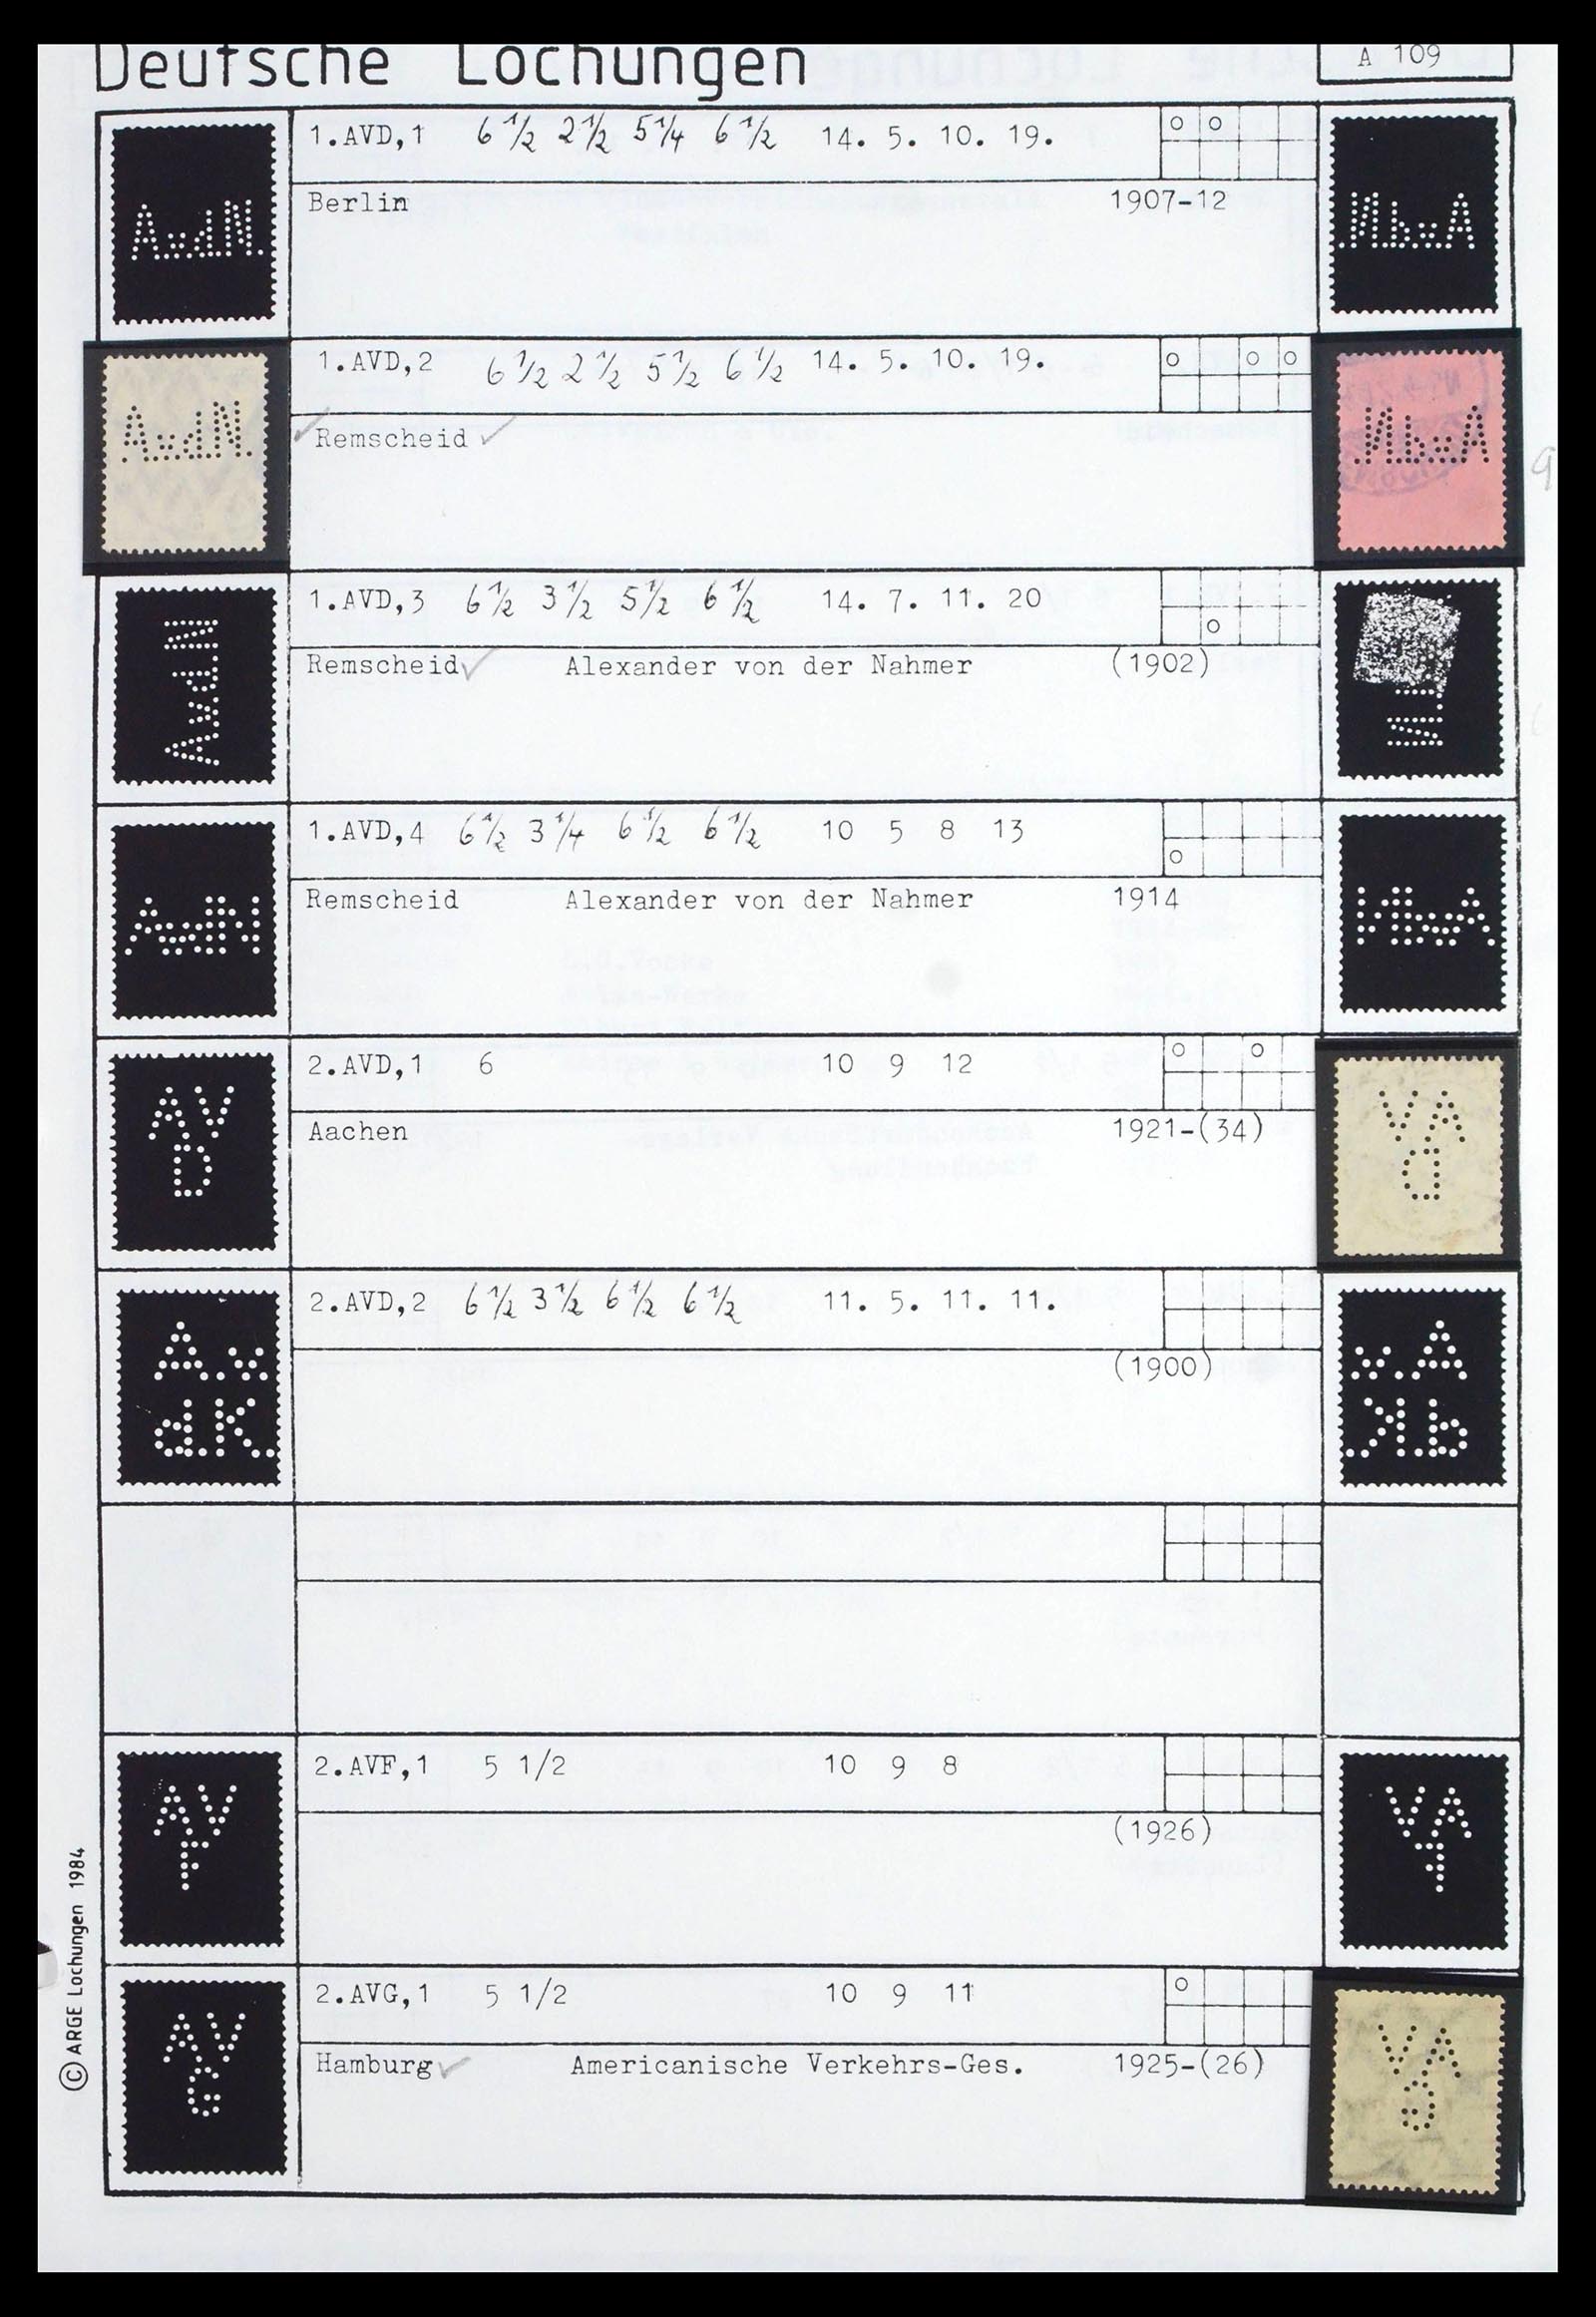 Deutsche Lochungen
A 109
1.AVD,1 6 1/2 2 1/2 5 1/4 6 1/2 14. 5. 10. 19.
Berlin 1907-12
A.v.d.N.
A.v.d.N.
1.AVD,2 6 1/2 2 1/2 5 1/2 6 1/2 14. 5. 10. 19.
Remscheid
A.v.d.N.
A.v.d.N.
1.AVD,3 6 1/2 3 1/2 5 1/2 6 1/2 14. 7. 11. 20
Remscheid Alexander von der Nahmer (1902)
AvdN
1.AVD,4 6 1/2 3 1/4 6 1/2 6 1/2 10 5 8 13
Remscheid Alexander von der Nahmer 1914
AvdN
AvdN
2.AVD,1 6 10 9 12
Aachen 1921-(34)
AV
D
AV
D
2.AVD,2 6 1/2 3 1/2 6 1/2 6 1/2 11. 5. 11. 11.
(1900)
A.v.
d.K.
A.v.
d.K.
2.AVF,1 5 1/2 10 9 8
(1926)
AV
F
AV
F
2.AVG,1 5 1/2 10 9 11
Hamburg Americanische Verkehrs-Ges. 1925-(26)
AV
G
AV
G
© ARGE Lochungen 1984